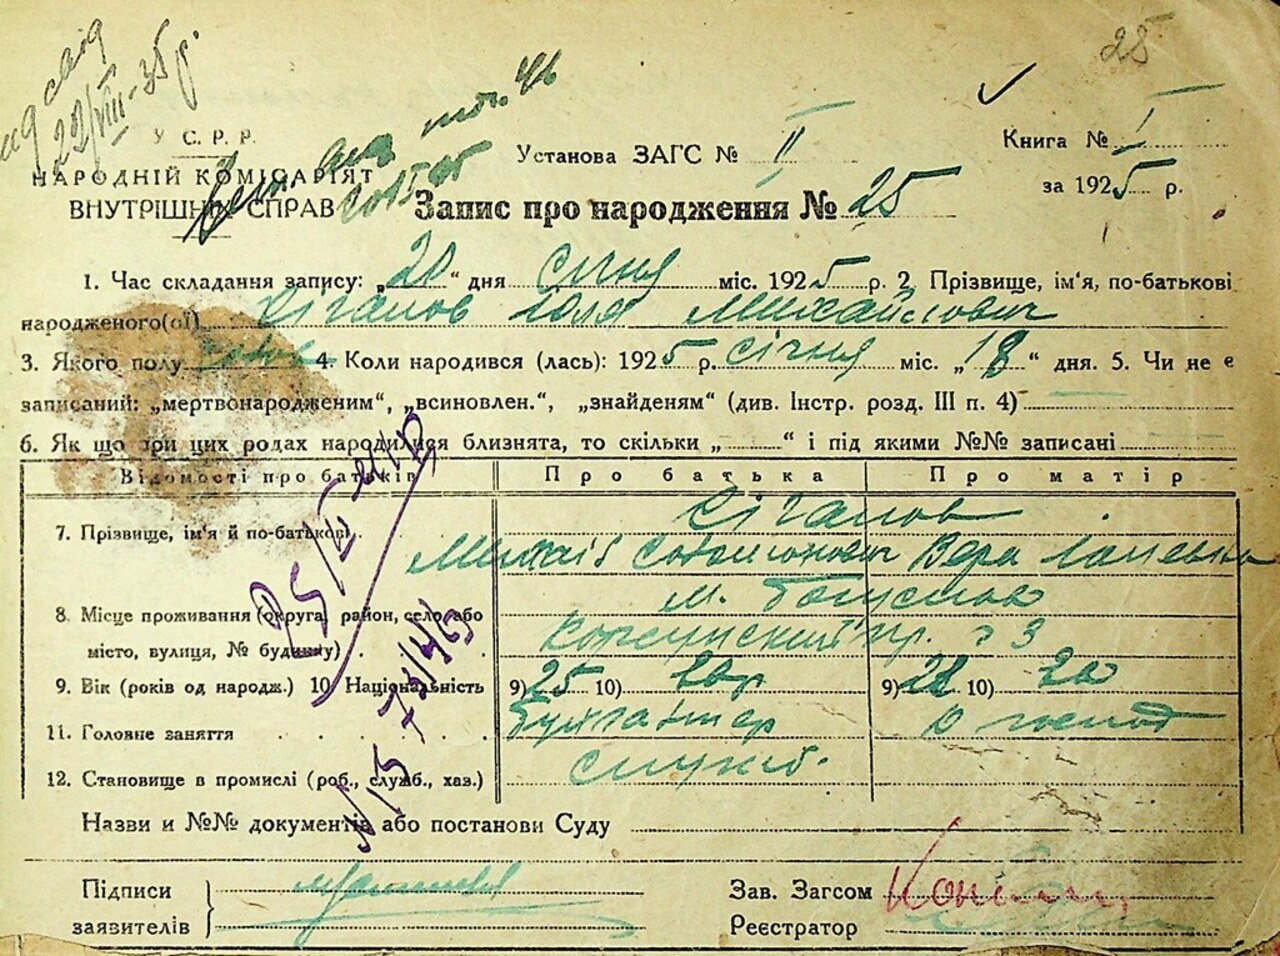 25
22/VIII-35 р.
У С. Р. Р.
НАРОДНІЙ КОМІСАРІЯТ
ВНУТРІШНІХ СПРАВ
Установа ЗАГС № II
Книга № I
за 1925 р.
Запис про народження № 25
1. Час складання запису: „20“ дня січня міс. 1925 р. 2. Прізвище, ім'я, по-батькові
народженого(ої) Сіганов Юля Михайлович
3. Якого полу чолов 4. Коли народився (лась): 1925 р. січня міс. „18“ дня. 5. Чи не є
записаний: „мертвонародженим“, „всиновлен.“, „знайденям“ (див. Інстр. розд. III п. 4)
6. Як що при цих родах народилися близнята, то скільки „ “ і під якими №№ записані
Відомості про батьків Про батька Про матір
Сіганов
7. Прізвище, ім'я й по-батькові
Михайл Соломонович Вера
м. Богуслав
8. Місце проживання (округа, район, село або
місто, вулиця, № будинку) пр. 3
9. Вік (років од народж.) 10. Національність 9) 25 10) євр 9) 21 10)
11. Головне заняття бухгалтер господ
12. Становище в промислі (роб., служб., хаз.) служб.
Назви и №№ документів або постанови Суду
Підписи
заявителів
Зав. Загсом
Реєстратор